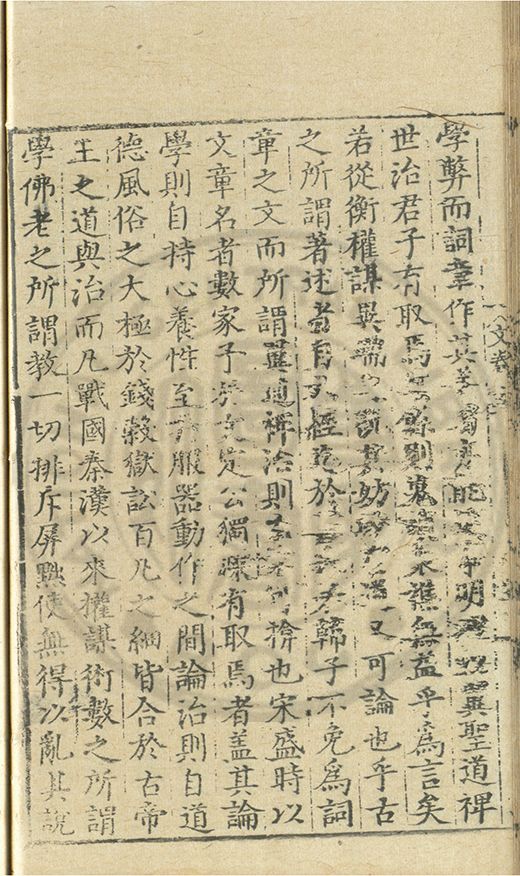 學弊而詞章作其善能明翼聖道裨
世治君子有取焉無益乎為言矣
若從衡權謀異端妨又可論也乎古
之所謂著述者有經於韓子不免為詞
章之文而所謂道裨治則猗也宋盛時以
文章名者數家予於文定公獨深有取焉者蓋其論
學則自持心養性至於服器動作之間論治則自道
德風俗之大極於錢穀獄訟百凡之細皆合於古帝
王之道與治而凡戰國秦漢以來權謀術數之所謂
學佛老之所謂教一切排斥屏黜使無得以亂其說